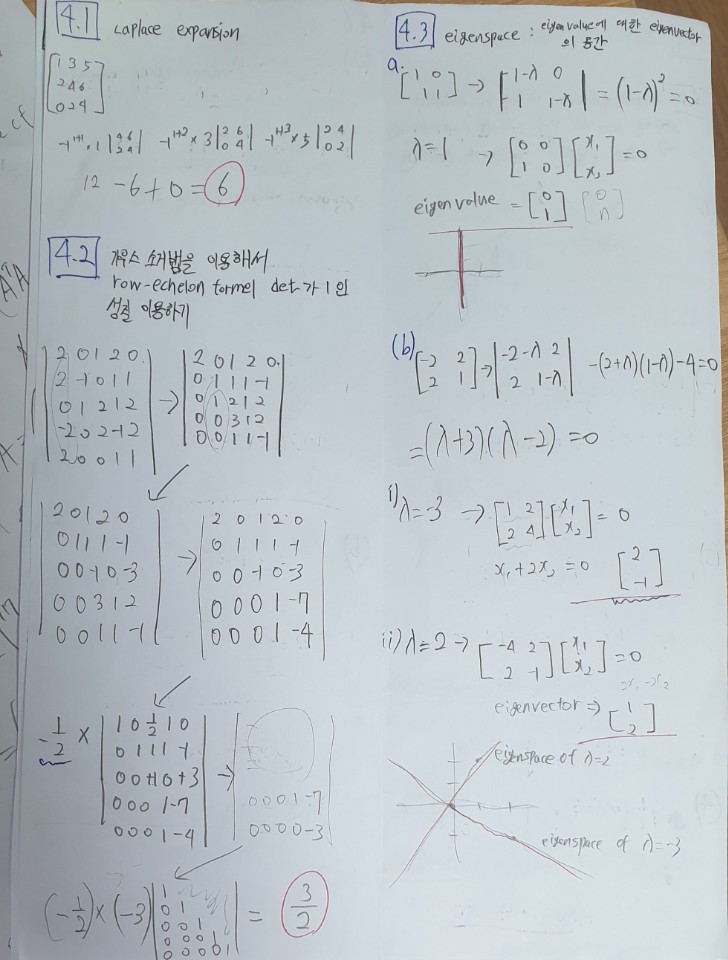 4.1 Laplace expansion
[1 3 5
2 4 6
0 2 4]
-1^{1+1}·1|4 6
2 4| -1^{1+2}×3|2 6
0 4| -1^{1+3}×5|2 4
0 2|
12 -6+0=6
4.2 가우스 소거법을 이용해서
row-echelon form에 det가 1인
성질 이용하기
|2 0 1 2 0
2 -1 0 1 1
0 1 2 1 2
-2 0 2 -1 2
2 0 0 1 1| →
|2 0 1 2 0
0 1 1 1 -1
0 1 2 1 2
0 0 3 1 2
0 0 1 1 -1|
|2 0 1 2 0
0 1 1 1 -1
0 0 -1 0 -3
0 0 3 1 2
0 0 1 1 -1| →
|2 0 1 2 0
0 1 1 1 -1
0 0 -1 0 -3
0 0 0 1 -7
0 0 0 1 -4|
-1/2 × |1 0 1/2 1 0
0 1 1 1 -1
0 0 +1 0 +3
0 0 0 1 -7
0 0 0 1 -4| →
0 0 0 1 -7
0 0 0 0 -3
(-1/2)×(-3)|1
0 1
0 0 1
0 0 0 1
0 0 0 0 1| = 3/2
4.3 eigenspace : eigenvalue에 대한 eigenvector
의 공간
a. [1 0
1 1] → |1-λ 0
1 1-λ| = (1-λ)²=0
λ=1 → [0 0
1 0][x₁
x₂]=0
eigenvalue = [0
1] [0
n]
(b) [-2 2
2 1] → |-2-λ 2
2 1-λ| -(2+λ)(1-λ)-4=0
=(λ+3)(λ-2)=0
i) λ=-3 → [1 2
2 4][x₁
x₂]=0
x₁+2x₂=0 [2
-1]
ii) λ=2 → [-4 2
2 -1][x₁
x₂]=0
eigenvector ⇒ [1
2]
eigenspace of λ=2
eigenspace of λ=-3